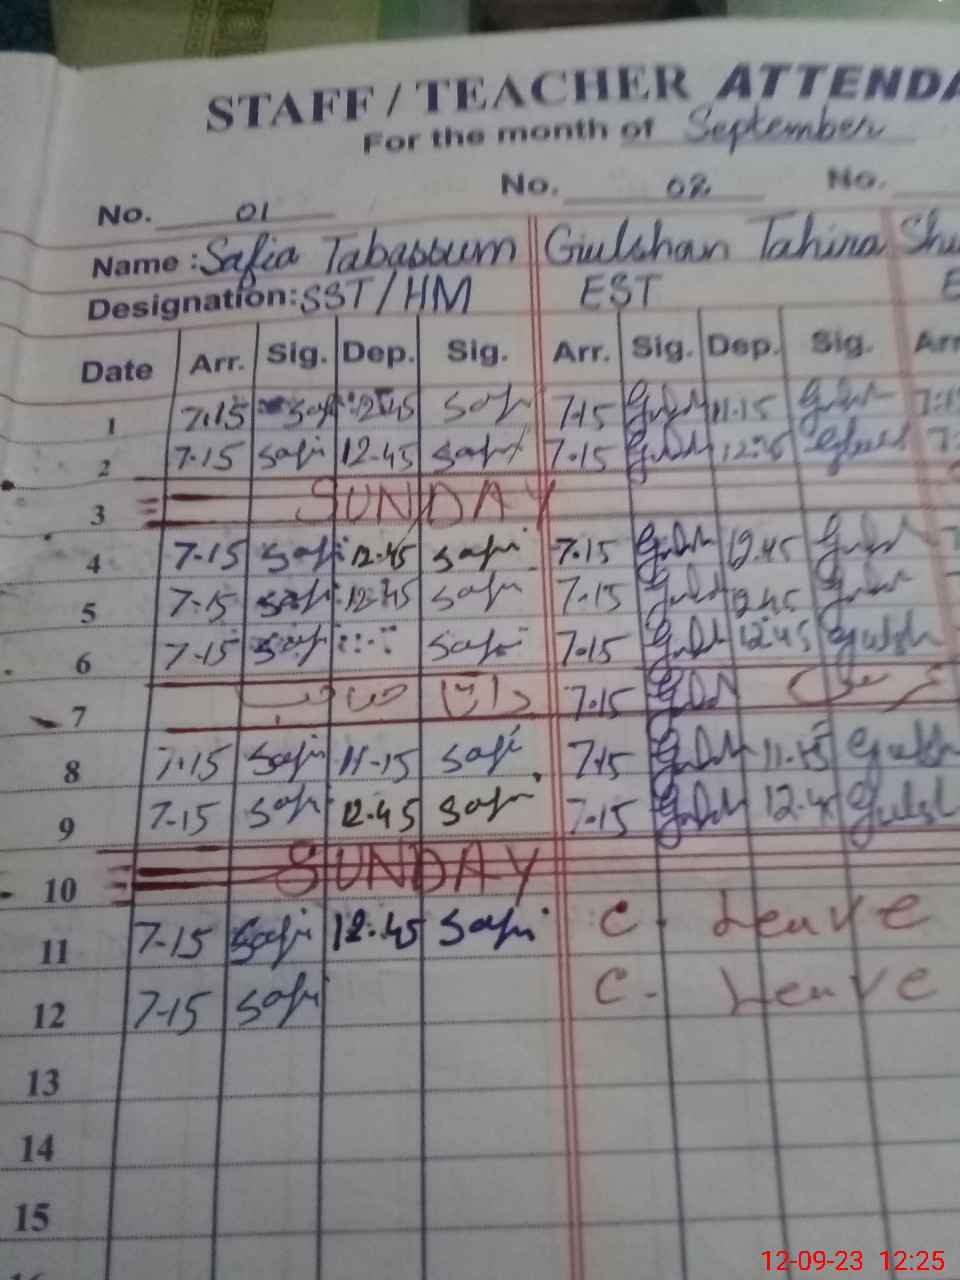 STAFF / TEACHER ATTENDA
For the month of September
No. 01 No. 02 No.
Name : Safia Tabassum Gulshan Tahira Shu
Designation: SST/HM EST E
Date Arr. Sig. Dep. Sig. Arr. Sig. Dep. Sig. Arr
1 7.15 Safi 12.45 Saf 7.15 Gulsh 11.15 Gulsh
2 7.15 Safi 12.45 Safi 7.15 Gulsh 12.45 Gulsh
3 SUNDAY
4 7.15 Safi 12.45 Safi 7.15 Gulsh 12.45 Gulsh
5 7.15 Safi 12.45 Safi 7.15 Gulsh 12.45 Gulsh
6 7.15 Safi Safi 7.15 Gulsh 12.45 Gulsh
7 7.15 Gulsh
8 7.15 Safi 11.15 Safi 7.15 Gulsh 11.15 Gulsh
9 7.15 Safi 12.45 Safi 7.15 Gulsh 12.45 Gulsh
10 SUNDAY
11 7.15 Safi 12.45 Safi C. Leave
12 7.15 Safi C. Leave
13
14
15
12-09-23 12:25